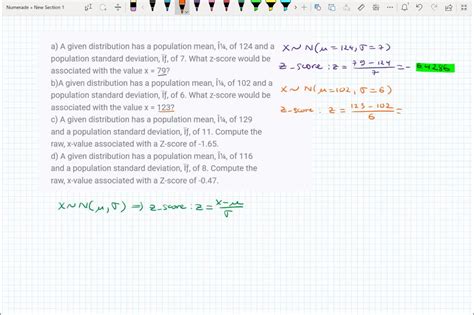 Numerade » New Section 1
a) A given distribution has a population mean, Î¼, of 124 and a
population standard deviation, Ïƒ, of 7. What z-score would be
associated with the value x = 79?
b)A given distribution has a population mean, Î¼, of 102 and a
population standard deviation, Ïƒ, of 6. What z-score would be
associated with the value x = 123?
c) A given distribution has a population mean, Î¼, of 129
and a population standard deviation, Ïƒ, of 11. Compute the
raw, x-value associated with a Z-score of -1.65.
d) A given distribution has a population mean, Î¼, of 116
and a population standard deviation, Ïƒ, of 8. Compute the
raw, x-value associated with a Z-score of -0.47.
X~N(μ,σ) => z_score : z = x-μ/σ
X~N(μ=124,σ=7)
z_score : z = 79-124/7 = - 6.4286
X~N(μ=102,σ=6)
z_score : z = 123-102/6 =